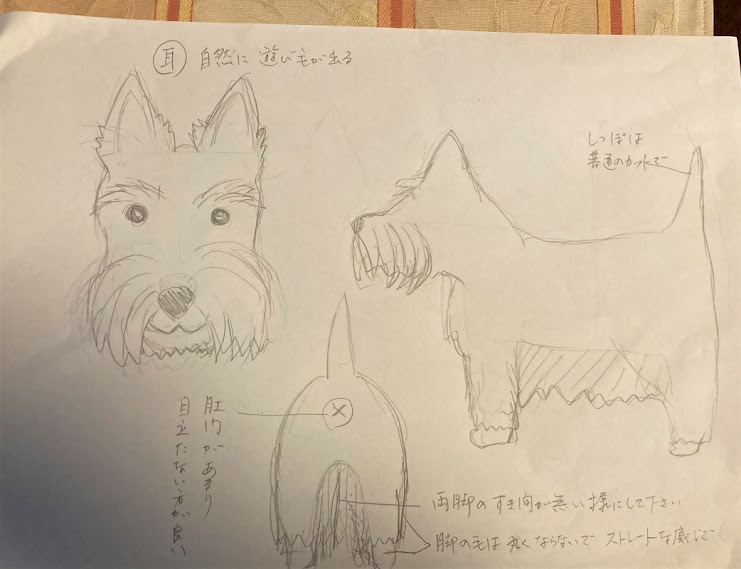 耳 自然に 遊び毛が出る
しっぽは
普通のカットで
肛門があまり
目立たない方が良い
両脚のすき間が無い様にして下さい
脚の毛は丸くならないで ストレートな感じで